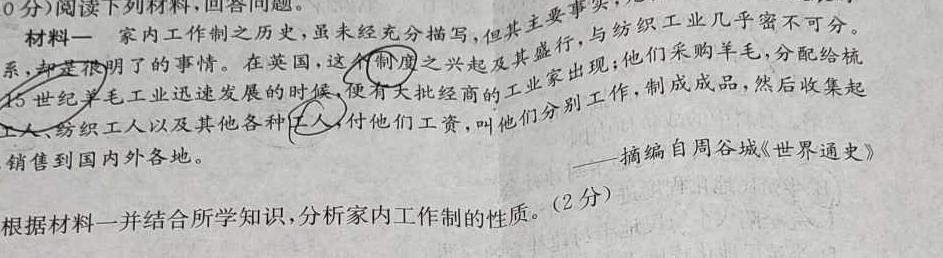 0分)阅读下列材料,回答问题。
材料一 家内工作制之历史,虽未经充分描写,但其主要事实,
系,却是很明了的事情。在英国,这个制度之兴起及其盛行,与纺织工业几乎密不可分。
15世纪羊毛工业迅速发展的时候,便有大批经商的工业家出现;他们采购羊毛,分配给梳
工人、纺织工人以及其他各种工人,付他们工资,叫他们分别工作,制成成品,然后收集起
销售到国内外各地。
——摘编自周谷城《世界通史》
根据材料一并结合所学知识,分析家内工作制的性质。(2分)